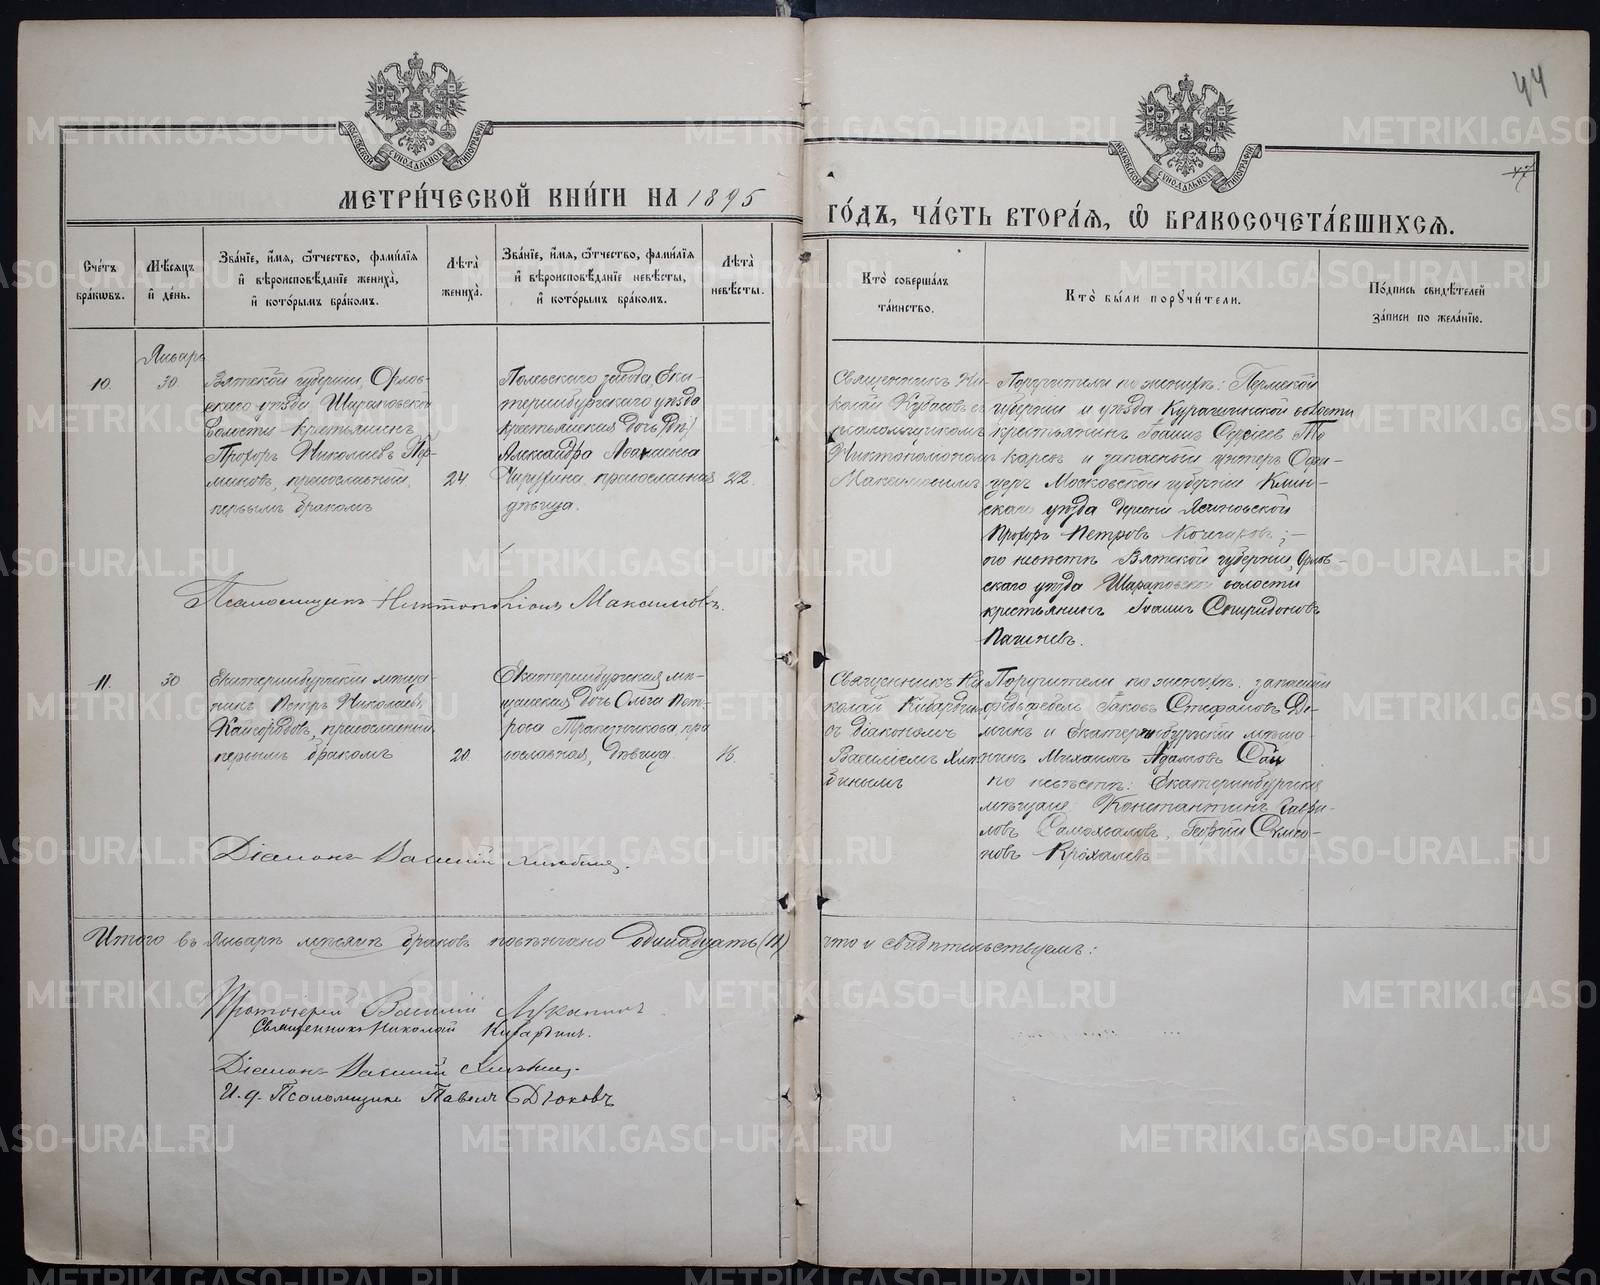 44
47
МОСКОВСКОЙ СѴНОДАЛЬНОЙ ТИПОГРАФІИ
МОСКОВСКОЙ СѴНОДАЛЬНОЙ ТИПОГРАФІИ
МЕТРИ́ЧЕСКОЙ КНИ́ГИ НА 1895
ГО́ДЪ, ЧА́СТЬ ВТОРА́Я, Ѡ҆ БРАКОСОЧЕТА́ВШИХСЯ.
Сче́тъ
бра́кѡвъ.
Мѣ́сяцъ
и҆ де́нь.
Зва́нїе, и҆́мя, ѻ҆́тчество, фами́лїя
и҆ вѣроисповѣ́данїе жениха̀,
и҆ кото́рымъ бра́комъ.
Лѣта̀
жениха̀.
Зва́нїе, и҆́мя, ѻ҆́тчество, фами́лїя
и҆ вѣроисповѣ́данїе невѣ́сты,
и҆ кото́рымъ бра́комъ.
Лѣта̀
невѣ́сты.
Кто̀ соверша́лъ
та́инство.
Кто̀ бы́ли порꙋчи́тели.
По́дпись свидѣ́телей
за́писи по жела́нїю.
Январь
10.
30
Вятской губерніи, Орлов-
скаго уѣзда Шараповской
волости крестьянинъ
Прохоръ Николаевъ
православный,
первымъ бракомъ
24
Екa-
теринбургскаго уѣзда
крестьянская дочь
Александра
православная
дѣвица.
22.
Священникъ Ни-
колай
псаломщикомъ
Никтополіономъ
Максимовымъ
Поручители по женихѣ: Пермской
губерніи и уѣзда волости
крестьянинъ Іоаннъ Сергіевъ
и запасный унтеръ Офи-
церъ Московской губерніи Клин-
скаго уѣзда деревни
Прохоръ Петровъ
по невѣстѣ Вятской губерніи, Орлов-
скаго уѣзда Шараповской волости
крестьянинъ Іоаннъ Спиридоновъ
Псаломщикъ Никтополіонъ Максимовъ.
11.
30
Екатеринбургскій мѣща-
нинъ Петръ Николаевъ
Кайгородовъ, православный
первымъ бракомъ
20
Екатеринбургская мѣ-
щанская дочь Ольга Пет-
рова Трапезникова, пра-
вославная, дѣвица.
16.
Священникъ Ни-
колай Кибардинъ
съ діакономъ
Василіемъ Хля-
бинымъ
Поручители по женихѣ: запасный
фельдфебель Іаковъ Стефановъ Де-
минъ и Екатеринбургскій мѣща-
нинъ Михаилъ Адамовъ
по невѣстѣ: Екатеринбургскіе
мѣщане Константинъ Гаври-
ловъ Самохваловъ, Георгій Симо-
новъ Крохалевъ
Діаконъ Василій Хлябинъ.
Итого въ Январѣ мѣсяцѣ браковъ повѣнчано Одинадцать (11) что и свидѣтельствуемъ:
Протоіерей Василій Луканинъ
Священникъ Николай Кибардинъ.
Діаконъ Василій Хлябинъ.
И. д. Псаломщика Павелъ Дюковъ
METRIKI.GASO-URAL.RU